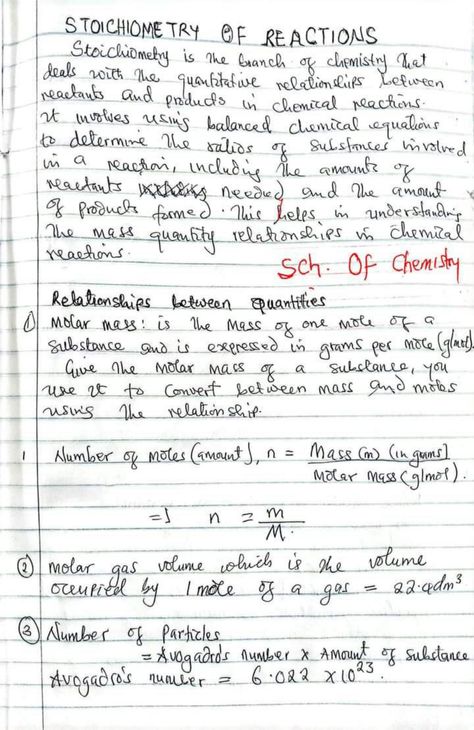 STOICHIOMETRY OF REACTIONS
Stoichiometry is the branch of chemistry that
deals with the quantitative relationships between
reactants and products in chemical reactions.
it involves using balanced chemical equations
to determine the ratios of substances involved
in a reaction, including the amounts of
reactants needed and the amount
of products formed. This helps in understanding
the mass quantity relationships in chemical
reactions.
Sch. Of Chemistry
Relationships between quantities
① Molar mass: is the mass of one mole of a
substance and is expressed in grams per mole (g/mol).
Give the molar mass of a substance, you
use it to convert between mass and moles
using the relationship.
1 Number of moles (amount), n = Mass (m) (in grams)
Molar mass (g/mol).
=> n = m
M.
② molar gas volume which is the volume
occupied by 1 mole of a gas = 22.4dm³
③ Number of Particles
= Avogadro's number x Amount of substance
Avogadro's number = 6.022 x10²³.